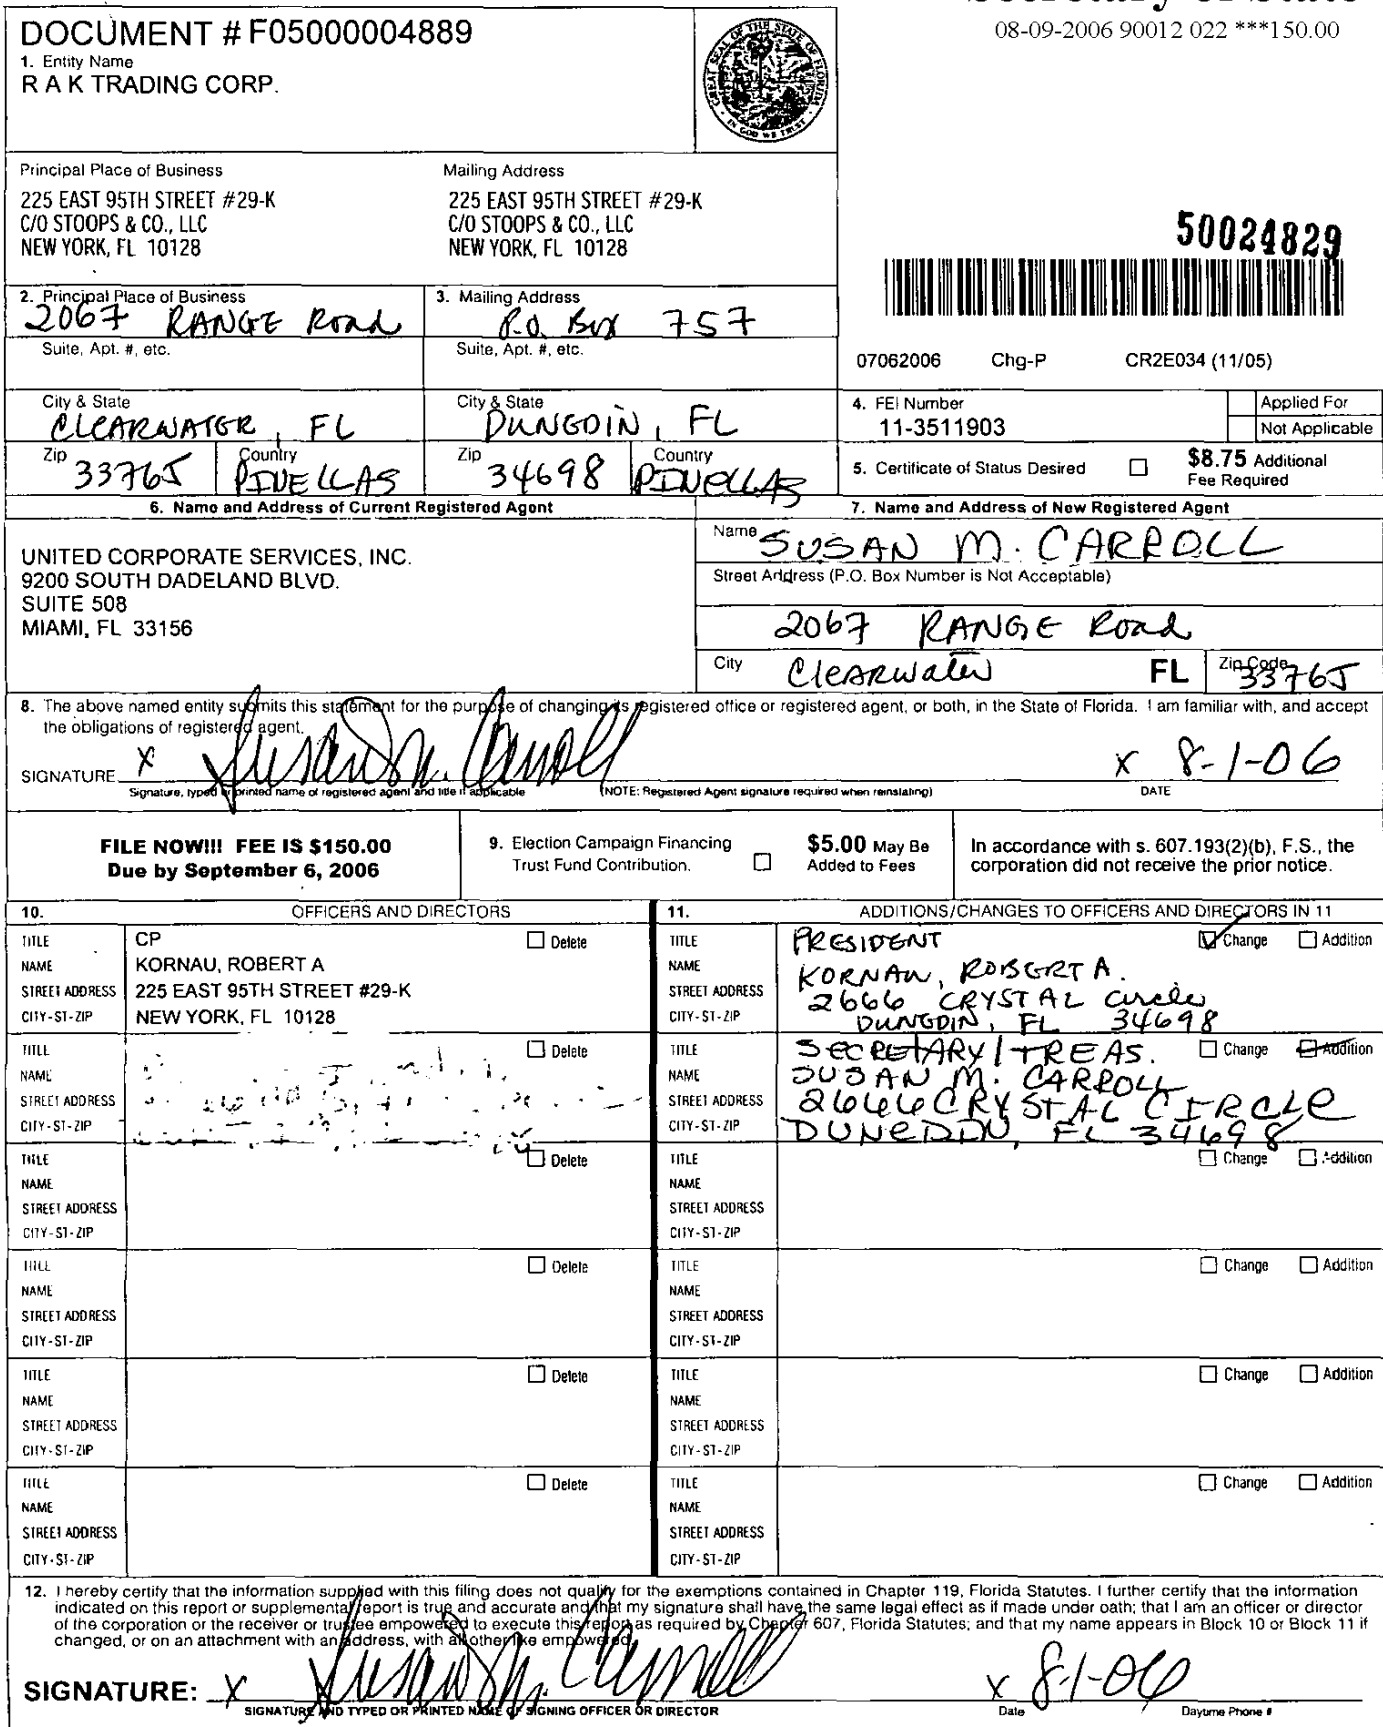 08-09-2006 90012 022 ***150.00
DOCUMENT # F05000004889
1. Entity Name
R A K TRADING CORP.
GREAT SEAL OF THE STATE OF FLORIDA
IN GOD WE TRUST
Principal Place of Business
225 EAST 95TH STREET #29-K
C/O STOOPS & CO., LLC
NEW YORK, FL 10128
Mailing Address
225 EAST 95TH STREET #29-K
C/O STOOPS & CO., LLC
NEW YORK, FL 10128
50024829
2. Principal Place of Business
2067 RANGE Road
3. Mailing Address
P.O. Box 757
Suite, Apt. #, etc.
Suite, Apt. #, etc.
07062006 Chg-P CR2E034 (11/05)
City & State
CLEARWATER, FL
City & State
DUNEDIN, FL
Zip 33765
Country PINELLAS
Zip 34698
Country PINELLAS
4. FEI Number
11-3511903
Applied For
Not Applicable
5. Certificate of Status Desired
$8.75 Additional
Fee Required
6. Name and Address of Current Registered Agent
UNITED CORPORATE SERVICES, INC.
9200 SOUTH DADELAND BLVD.
SUITE 508
MIAMI, FL 33156
7. Name and Address of New Registered Agent
Name SUSAN M. CARROLL
Street Address (P.O. Box Number is Not Acceptable)
2067 RANGE Road
City Clearwater FL Zip Code 33765
8. The above named entity submits this statement for the purpose of changing its registered office or registered agent, or both, in the State of Florida. I am familiar with, and accept
the obligations of registered agent.
SIGNATURE X Susan M. Carroll X 8-1-06
Signature, typed or printed name of registered agent and title if applicable (NOTE: Registered Agent signature required when reinstating) DATE
FILE NOW!!! FEE IS $150.00
Due by September 6, 2006
9. Election Campaign Financing
Trust Fund Contribution.
$5.00 May Be
Added to Fees
In accordance with s. 607.193(2)(b), F.S., the
corporation did not receive the prior notice.
10. OFFICERS AND DIRECTORS
TITLE CP Delete
NAME KORNAU, ROBERT A
STREET ADDRESS 225 EAST 95TH STREET #29-K
CITY-ST-ZIP NEW YORK, FL 10128
TITLE Delete
NAME
STREET ADDRESS
CITY-ST-ZIP
TITLE Delete
NAME
STREET ADDRESS
CITY-ST-ZIP
TITLE Delete
NAME
STREET ADDRESS
CITY-ST-ZIP
TITLE Delete
NAME
STREET ADDRESS
CITY-ST-ZIP
TITLE Delete
NAME
STREET ADDRESS
CITY-ST-ZIP
11. ADDITIONS/CHANGES TO OFFICERS AND DIRECTORS IN 11
TITLE PRESIDENT Change Addition
NAME KORNAU, ROBERT A.
STREET ADDRESS 2666 CRYSTAL Circle
CITY-ST-ZIP DUNEDIN, FL 34698
TITLE SECRETARY/TREAS. Change Addition
NAME SUSAN M. CARROLL
STREET ADDRESS 2666 CRYSTAL CIRCLE
CITY-ST-ZIP DUNEDIN, FL 34698
TITLE Change Addition
NAME
STREET ADDRESS
CITY-ST-ZIP
TITLE Change Addition
NAME
STREET ADDRESS
CITY-ST-ZIP
TITLE Change Addition
NAME
STREET ADDRESS
CITY-ST-ZIP
TITLE Change Addition
NAME
STREET ADDRESS
CITY-ST-ZIP
12. I hereby certify that the information supplied with this filing does not qualify for the exemptions contained in Chapter 119, Florida Statutes. I further certify that the information
indicated on this report or supplemental report is true and accurate and that my signature shall have the same legal effect as if made under oath; that I am an officer or director
of the corporation or the receiver or trustee empowered to execute this report as required by Chapter 607, Florida Statutes; and that my name appears in Block 10 or Block 11 if
changed, or on an attachment with an address, with all other like empowered.
SIGNATURE: X Susan M. Carroll X 8-1-06
SIGNATURE AND TYPED OR PRINTED NAME OF SIGNING OFFICER OR DIRECTOR Date Daytime Phone #